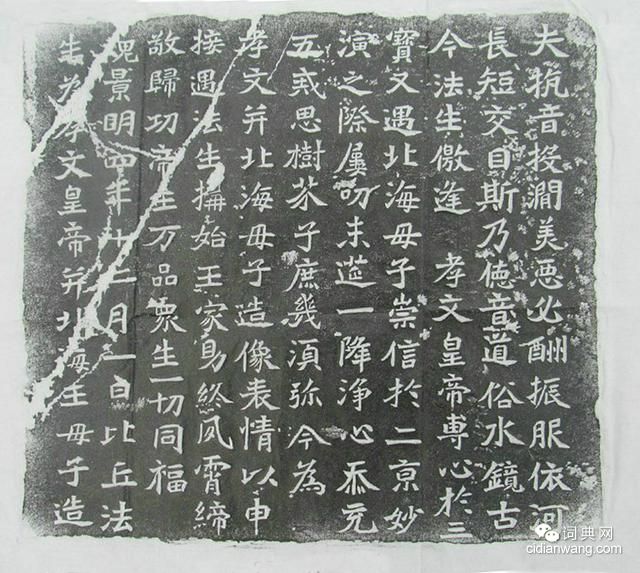 夫抗音投澗美惡必酬振服依河
長短交目斯乃德音道俗水鏡古
今法生儌逢 孝文皇帝專心於三
寶又遇北海母子崇信於二京妙
演之際屢叨末筵一降淨心忝充
五戒思樹芥子庶幾須弥今為
孝文并北海母子造像表情以申
接遇法生構始王家助終夙霄締
敬歸功帝王万品衆生一切同福
魏景明四年十二月一日比丘法
生為孝文皇帝并北海王母子造
词典网
cidianwang.com